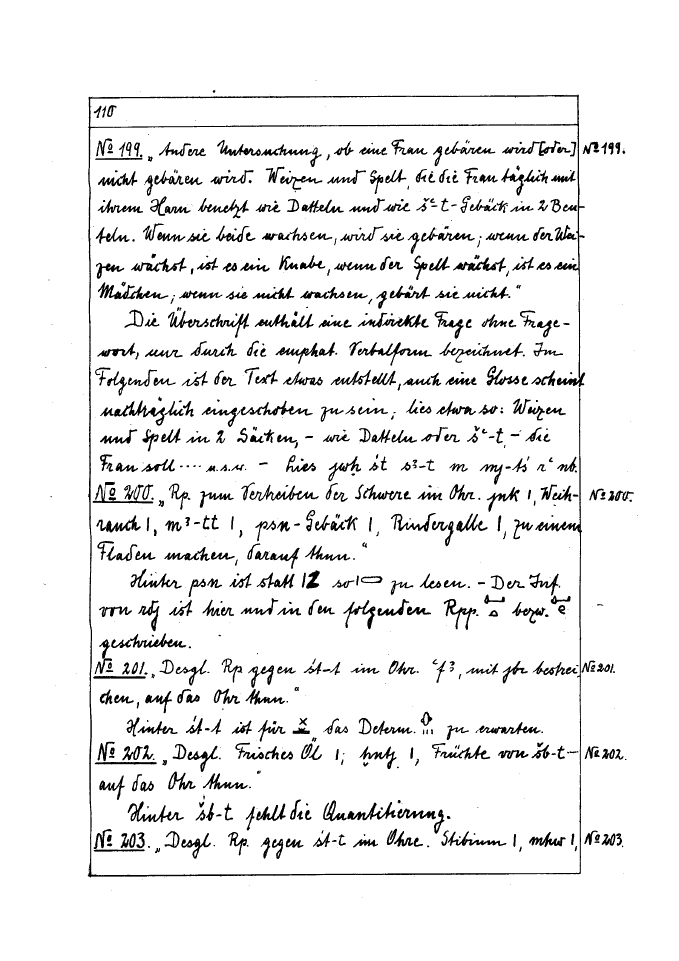 110
No 199. „Andere Untersuchung, ob eine Frau gebären wird [oder] No 199.
nicht gebären wird. Weizen und Spelt, die die Frau täglich mit
ihrem Harn benetzt wie Datteln und wie šʿ-t-Gebäck in 2 Beu-
teln. Wenn sie beide wachsen, wird sie gebären; wenn der Wei-
zen wächst, ist es ein Knabe, wenn der Spelt wächst, ist es ein
Mädchen; wenn sie nicht wachsen, gebärt sie nicht.“
Die Überschrift enthält eine indirekte Frage ohne Frage-
wort, nur durch die emphat. Verbalform bezeichnet. Im
Folgenden ist der Text etwas entstellt, auch eine Glosse scheint
nachträglich eingeschoben zu sein; lies etwa so: Weizen
und Spelt in 2 Säcken, – wie Datteln oder šʿ-t – die
Frau soll ..... u.s.w. – Lies jwḥ śt sꜣ-t m mj-tś rʿ nb.
No 200. „Rp. zum Vertreiben der Schwere im Ohr. jnk 1, Weih- No 200.
rauch 1, mꜣ-tt 1, psn-Gebäck 1, Rindergalle 1, zu einem
Fladen machen, darauf thun.“
Hinter psn ist statt zu lesen. – Der Inf.
von rdj ist hier und in den folgenden Rpp. bezw.
geschrieben.
No 201. „Desgl. Rp gegen śt-t im Ohr. ʿfꜣ, mit jbr bestrei- No 201.
chen, auf das Ohr thun.“
Hinter śt-t ist für das Determ. zu erwarten.
No 202. „Desgl. Frisches Öl 1; ḫntj 1, Früchte von šb-t – No 202.
auf das Ohr thun.“
Hinter šb-t fehlt die Quantitierung.
No 203. „Desgl. Rp. gegen śt-t im Ohre. Stibium 1, mhw 1, No 203.